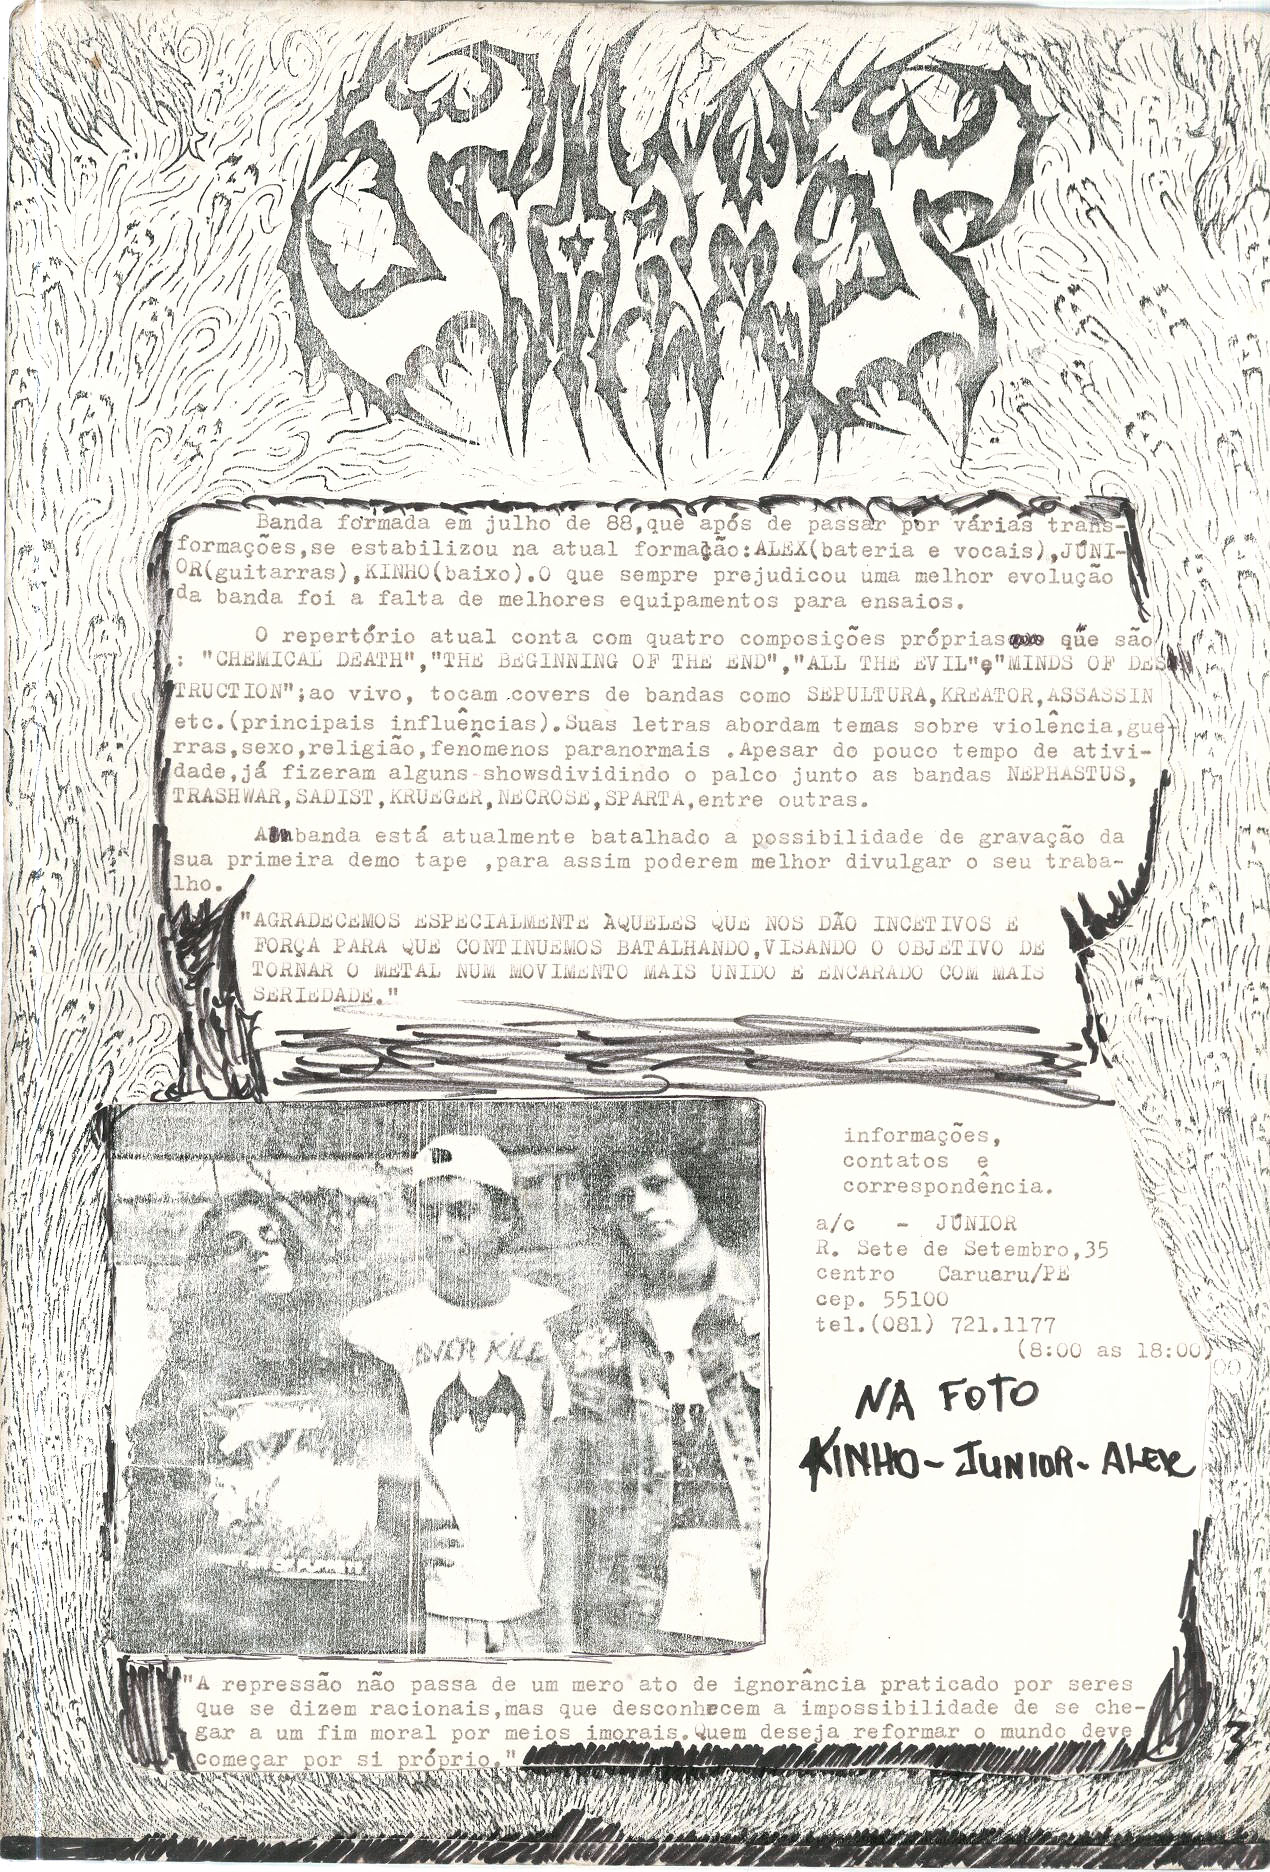 STORMS
Banda formada em julho de 88,que após de passar por várias trans-
formações,se estabilizou na atual formação:ALEX(bateria e vocais),JÚNI-
OR(guitarras),KINHO(baixo).O que sempre prejudicou uma melhor evolução
da banda foi a falta de melhores equipamentos para ensaios.
O repertório atual conta com quatro composições próprias que são
: "CHEMICAL DEATH","THE BEGINNING OF THE END","ALL THE EVIL"e"MINDS OF DES
TRUCTION";ao vivo, tocam covers de bandas como SEPULTURA,KREATOR,ASSASSIN
etc.(principais influências).Suas letras abordam temas sobre violência,gue-
rras,sexo,religião,fenômenos paranormais .Apesar do pouco tempo de ativi-
dade,já fizeram alguns showsdividindo o palco junto as bandas NEPHASTUS,
TRASHWAR,SADIST,KRUEGER,NECROSE,SPARTA,entre outras.
A banda está atualmente batalhado a possibilidade de gravação da
sua primeira demo tape ,para assim poderem melhor divulgar o seu traba-
lho.
"AGRADECEMOS ESPECIALMENTE ÀQUELES QUE NOS DÃO INCETIVOS E
FORÇA PARA QUE CONTINUEMOS BATALHANDO,VISANDO O OBJETIVO DE
TORNAR O METAL NUM MOVIMENTO MAIS UNIDO E ENCARADO COM MAIS
SERIEDADE."
informações,
contatos e
correspondência.
a/c - JÚNIOR
R. Sete de Setembro,35
centro Caruaru/PE
cep. 55100
tel.(081) 721.1177
(8:00 as 18:00)
NA FOTO
KINHO-JUNIOR-ALEX
OVER KILL
MASTER OF PUPPETS
"A repressão não passa de um mero ato de ignorância praticado por seres
que se dizem racionais,mas que desconhecem a impossibilidade de se che-
gar a um fim moral por meios imorais.Quem deseja reformar o mundo deve
começar por si próprio."
3